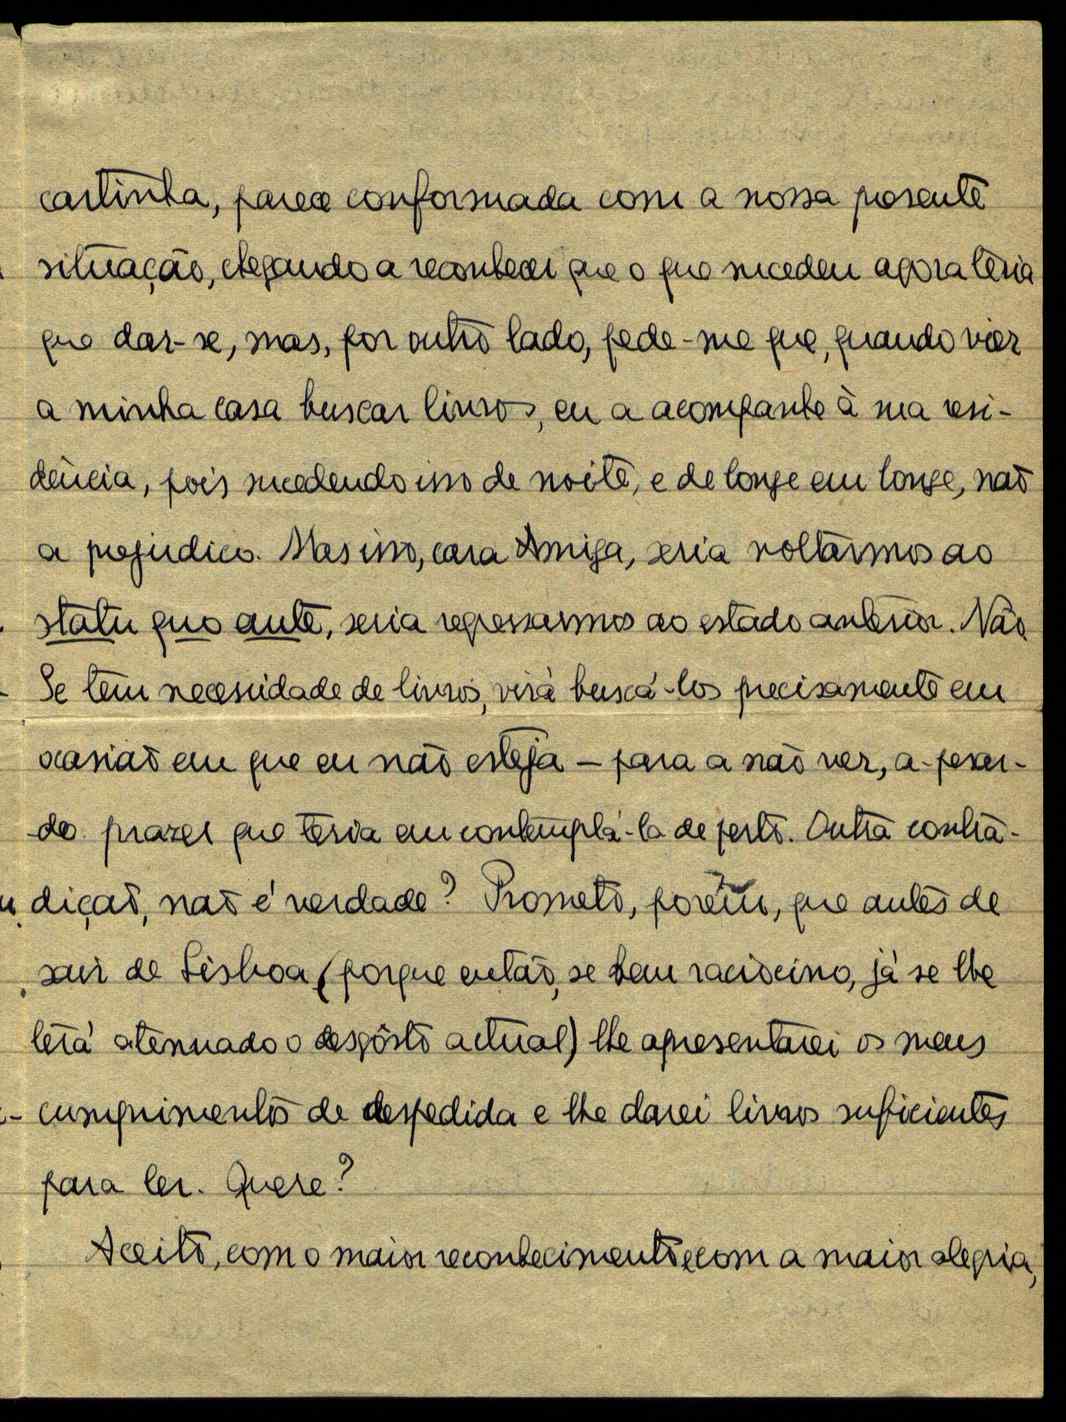 cartinha, parece conformada com a nossa presente
situação, chegando a reconhecer que o que sucedeu agora teria
que dar-se, mas, por outro lado, pede-me que, quando vier
a minha casa buscar livros, eu a acompanhe à sua resi-
dência, pois sucedendo isso de noite, e de longe em longe, não
a prejudico. Mas isso, cara Amiga, seria voltarmos ao
statu quo ante, seria regressarmos ao estado anterior. Não
Se tem necessidade de livros, virá buscá-los precisamente em
ocasião em que eu não esteja — para a não ver, a-pesar-
-do prazer que teria em contemplá-la de perto. Outra contra-
dição, não é verdade? Prometo, porém, que antes de
sair de Lisboa (porque então, se bem raciocino, já se lhe
terá atenuado o desgôsto actual) lhe apresentarei os meus
cumprimentos de despedida e lhe darei livros suficientes
para ler. Quere?
Aceito, com o maior reconhecimento e com a maior alegria,